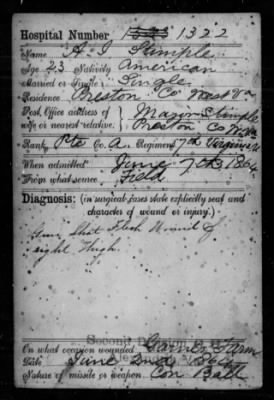 Hospital Number 1322
Name A. J. Stimple
Age 23 Nativity American
Married or Single Single
Residence Preston Co West Va
Post Office address of Major Stimple
wife or nearest relative: Preston Co W Va
Rank Pte Co. A Regiment 7th Virginia
When admitted June 7th 1864
From what source Field
Diagnosis: (in surgical cases state explicitly seat and
character of wound or injury.)
Gun Shot Flesh Wound of
right Thigh.
Second
On what occasion wounded Gaines Farm
Date June 2nd 1864
Nature of missile or weapon Con Ball